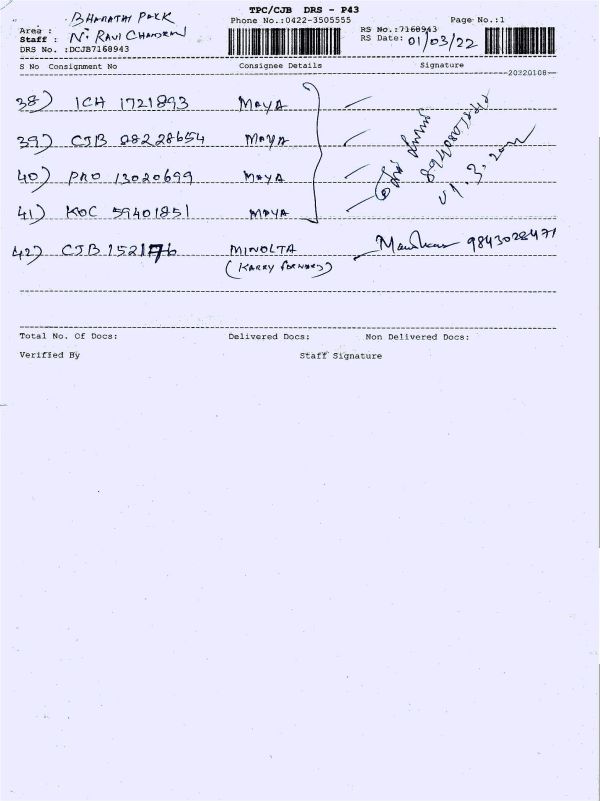 TPC/CJB DRS - P43
Area : BHARATHI PARK
Phone No.:0422-3505555
Page No.:1
Staff : N. RAVI CHANDRAN
RS No.:7160943
RS Date: 01/03/22
DRS No. :DCJB7160943
S No Consignment No Consignee Details Signature
20220108
38) ICH 1721893 MAYA
39) CJB 08228654 MAYA
40) PRO 13020699 MAYA
41) KOC 59401851 MAYA
1.3.2022
42) CJB 152176 MINOLTA 9843028471
(KARRY FORWARD)
Total No. Of Docs: Delivered Docs: Non Delivered Docs:
Verified By Staff Signature